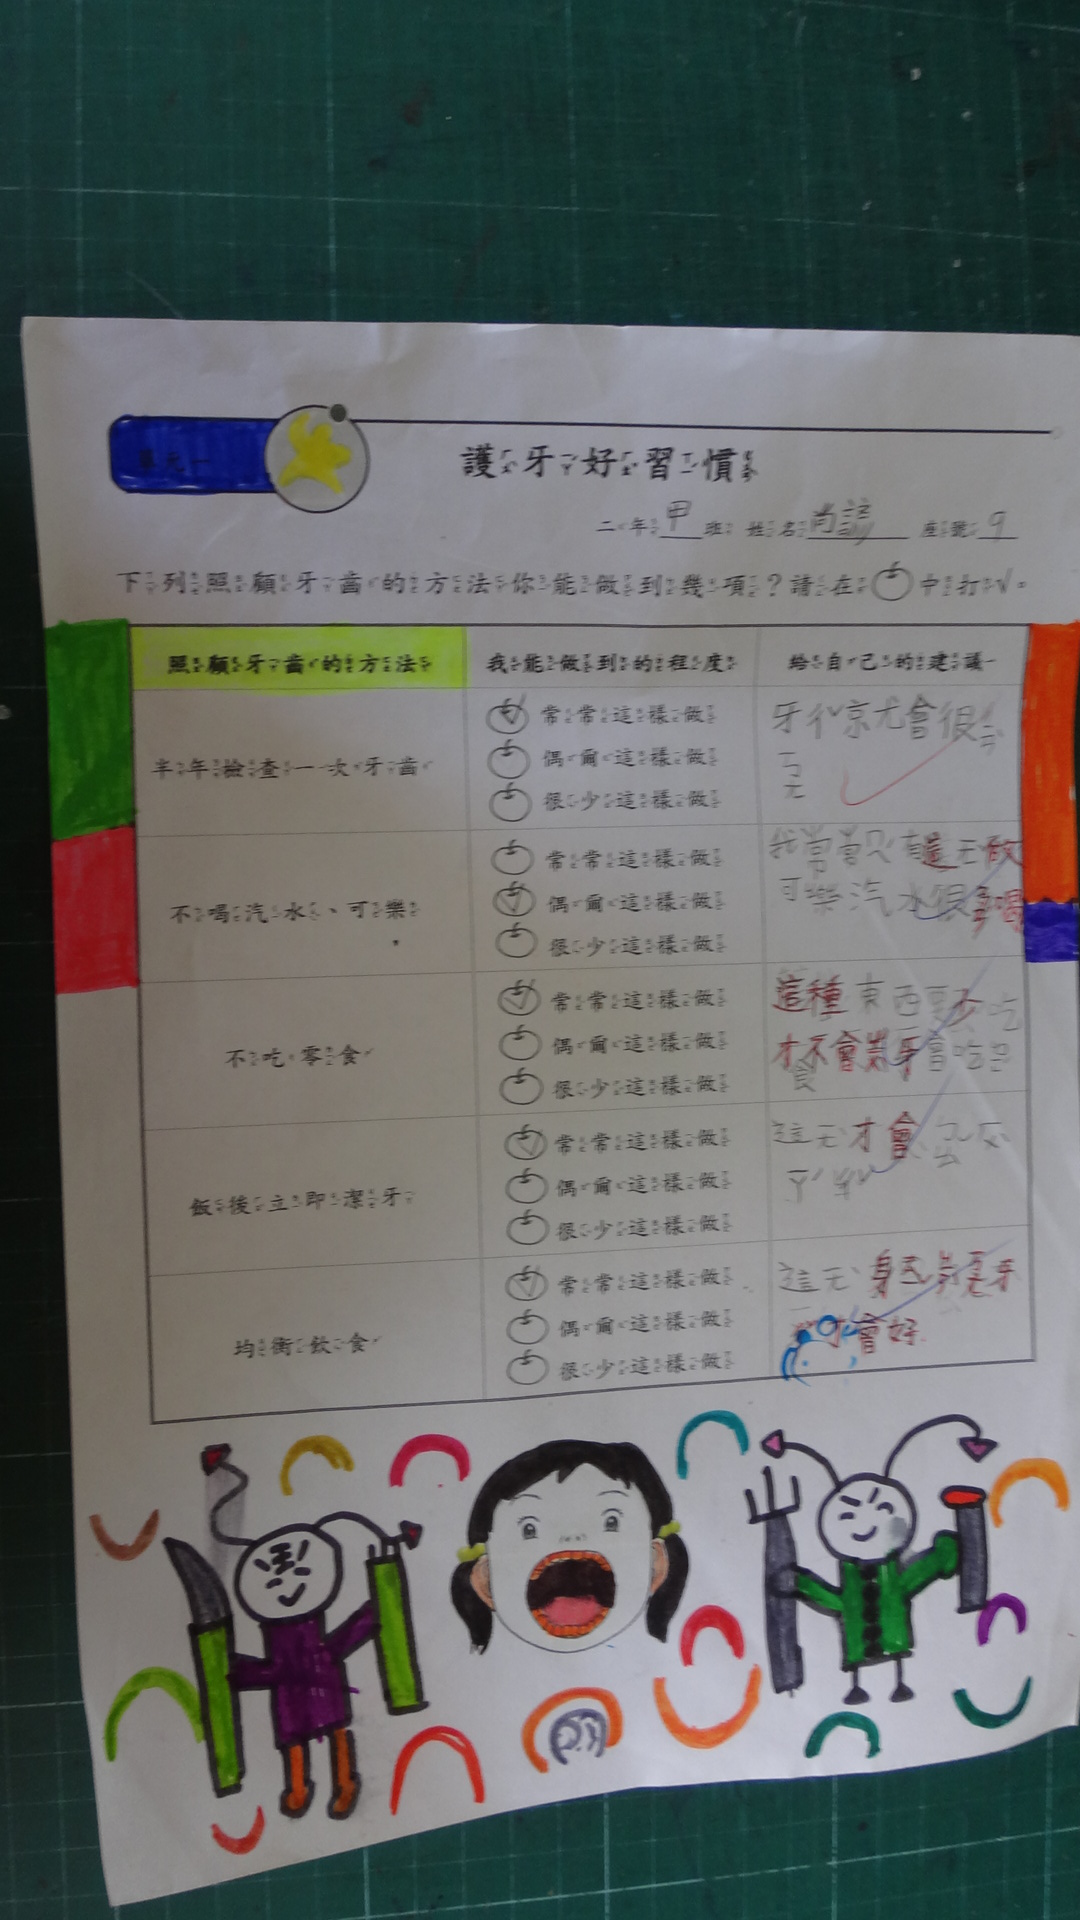 單元一
護牙好習慣
二年甲班 姓名尚諺 座號9
下列照顧牙齒的方法你能做到幾項？請在 中打√。
照顧牙齒的方法 我能做到的程度 給自己的建議
半年檢查一次牙齒
常常這樣做
偶爾這樣做
很少這樣做
不喝汽水、可樂
常常這樣做
偶爾這樣做
很少這樣做
可樂汽水很
不吃零食
常常這樣做
偶爾這樣做
很少這樣做
這種東西要少吃
才不會蛀牙會吃
飯後立即潔牙
常常這樣做
偶爾這樣做
很少這樣做
才會
均衡飲食
常常這樣做
偶爾這樣做
很少這樣做
才會好